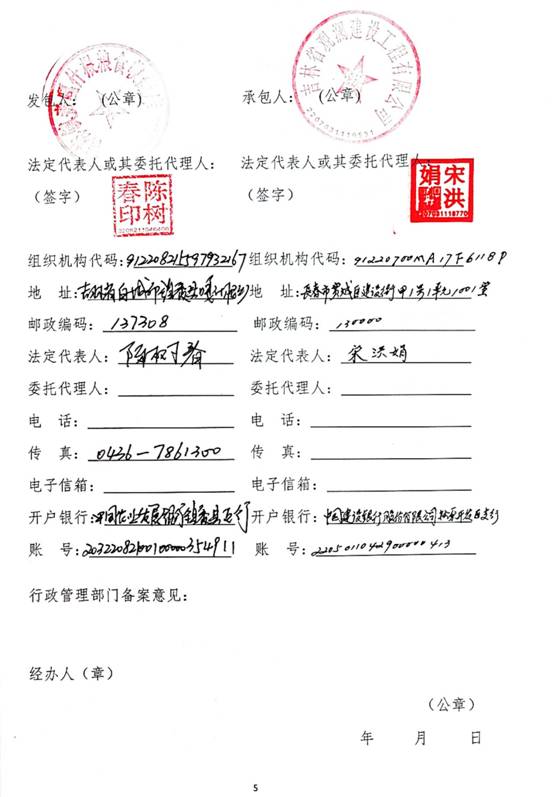 发包人： （公章） 承包人： （公章）
吉林省观澜建设工程有限公司
2207031118131
法定代表人或其委托代理人： 法定代表人或其委托代理人：
（签字） （签字）
陈树春印
2208211046406
宋洪娟
2207031118770
组织机构代码：91220821597932167 组织机构代码：91220700MA17F6118P
地 址：吉林省白城市镇赉 地 址：长春市宽城区建设街甲1号1单元1001室
邮政编码：137308 邮政编码：130000
法定代表人：陈树春 法定代表人：宋洪娟
委托代理人： 委托代理人：
电 话： 电 话：
传 真：0436-7861300 传 真：
电子信箱： 电子信箱：
开户银行：中国农业发展银行镇赉县支行 开户银行：中国建设银行股份有限公司 支行
账 号：20322082100100000354911 账 号：22050110429000000413
行政管理部门备案意见：
经办人（章）
（公章）
年 月 日
5